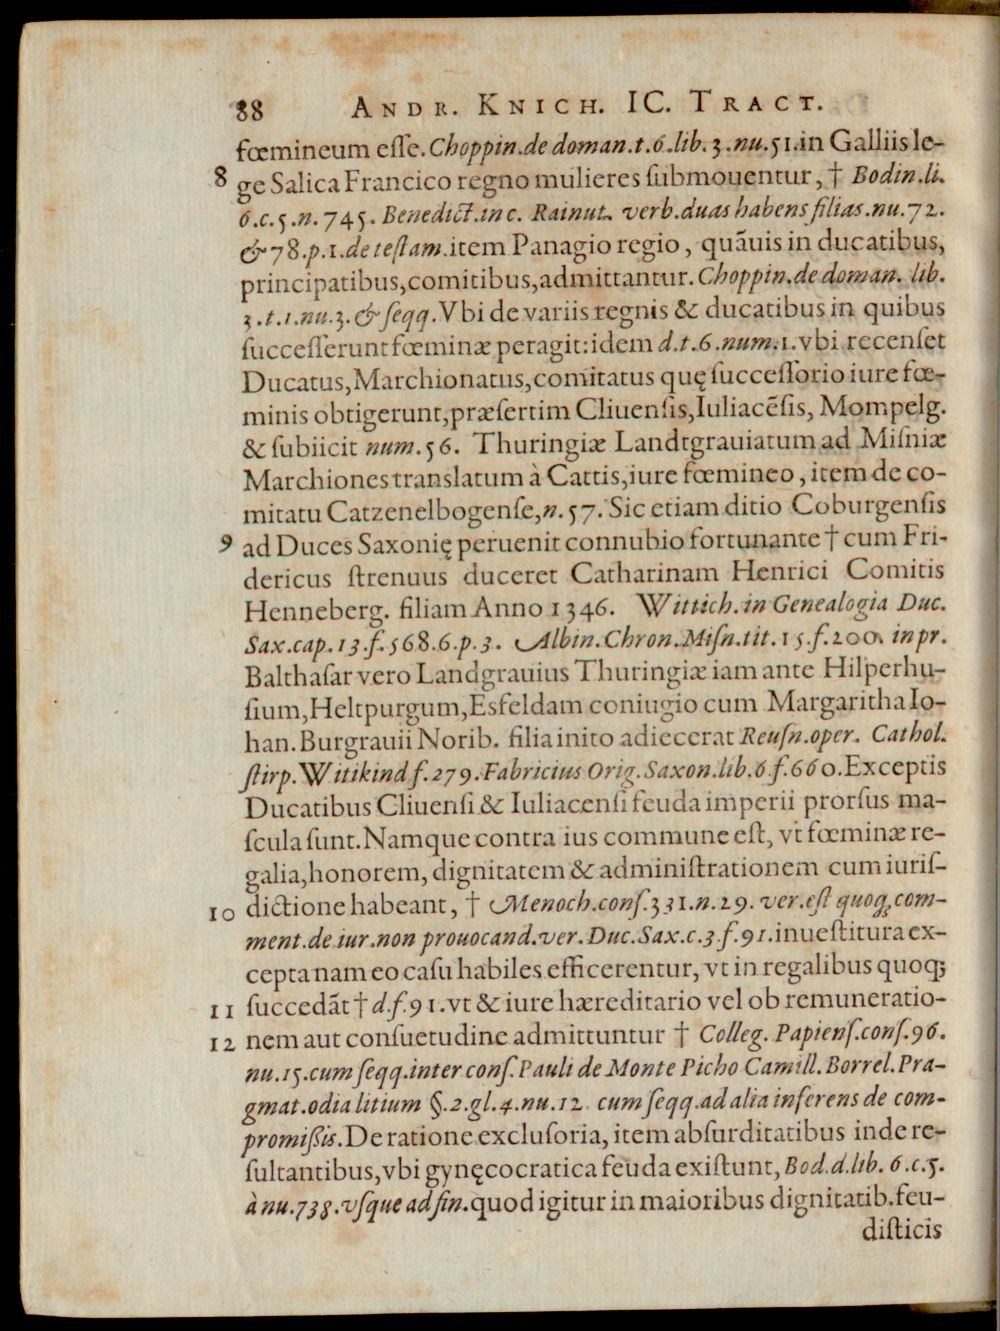 88 ANDR. KNICH. IC. TRACT.
fœmineum esse. Choppin.de doman.t.6.lib.3.nu.51.in Galliis le-
8 ge Salica Francico regno mulieres submouentur, † Bodin.li.
6.c.5.n.745. Benedict.in c. Rainut. verb.duas habens filias.nu.72.
& 78.p.1.de testam.item Panagio regio, quãuis in ducatibus,
principatibus,comitibus,admittantur. Choppin.de doman. lib.
3.t.1.nu.3.& seqq.Vbi de variis regnis & ducatibus in quibus
successerunt fœminæ peragit:idem d.t.6.num.1.vbi recenset
Ducatus,Marchionatus,comitatus quę successorio iure fœ-
minis obtigerunt,præsertim Cliuensis,Iuliacēsis, Mompelg.
& subiicit num.56. Thuringiæ Landtgrauiatum ad Misniæ
Marchiones translatum à Cattis,iure fœmineo, item de co-
mitatu Catzenelbogense,n.57. Sic etiam ditio Coburgensis
9 ad Duces Saxonię peruenit connubio fortunante † cum Fri-
dericus strenuus duceret Catharinam Henrici Comitis
Henneberg. filiam Anno 1346. Wittich.in Genealogia Duc.
Sax.cap.13.f.568.6.p.3. Albin.Chron.Misn.tit.15.f.200. in pr.
Balthasar vero Landgrauius Thuringiæ iam ante Hilperhu-
sium,Heltpurgum,Esfeldam coniugio cum Margaritha Io-
han.Burgrauii Norib. filia inito adiecerat Reusn.oper. Cathol.
stirp.Witikind f.279.Fabricius Orig.Saxon.lib.6.f.660.Exceptis
Ducatibus Cliuensi & Iuliacensi feuda imperii prorsus ma-
scula sunt.Namque contra ius commune est, vt fœminæ re-
galia,honorem, dignitatem & administrationem cum iuris-
10 dictione habeant, † Menoch.cons.331.n.29. ver.est quoq; com-
ment.de iur.non prouocand.ver.Duc.Sax.c.3.f.91.inuestitura ex-
cepta nam eo casu habiles efficerentur, vt in regalibus quoq;
11 succedãt † d.f.91.vt & iure hæreditario vel ob remuneratio-
12 nem aut consuetudine admittuntur † Colleg. Papiens.cons.96.
nu.15.cum seqq.inter cons.Pauli de Monte Picho Camill.Borrel.Pra-
gmat.odia litium §.2.gl.4.nu.12. cum seqq.ad alia inferens de com-
promißis.De ratione exclusoria, item absurditatibus inde re-
sultantibus,vbi gynęcocratica feuda existunt, Bod.d.lib. 6.c.5.
à nu.738.vsque ad fin.quod igitur in maioribus dignitatib.feu-
disticis